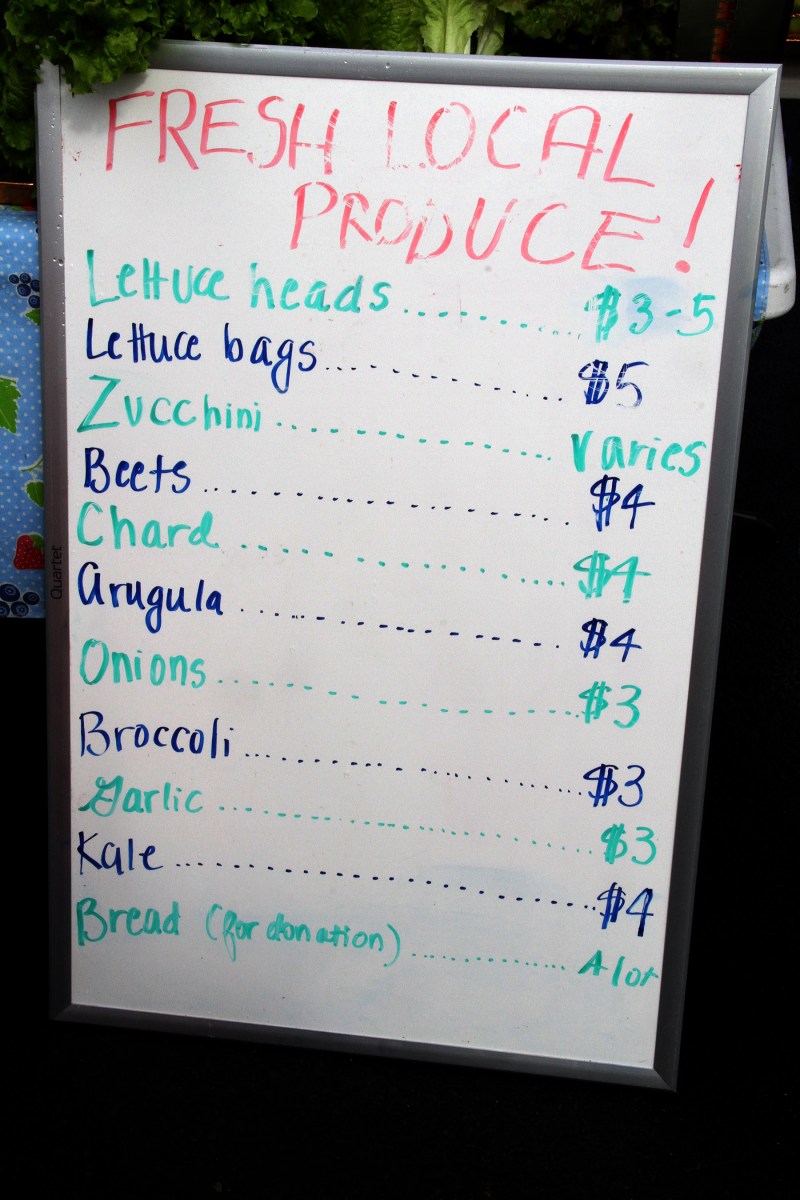 FRESH LOCAL
PRODUCE!
Lettuce heads ............ $3-5
Lettuce bags ............ $5
Zucchini ............ varies
Beets ............ $4
Chard ............ $4
arugula ............ $4
Onions ............ $3
Broccoli ............ $3
Garlic ............ $3
Kale ............ $4
Bread (for donation) ............ A lot
Quartet